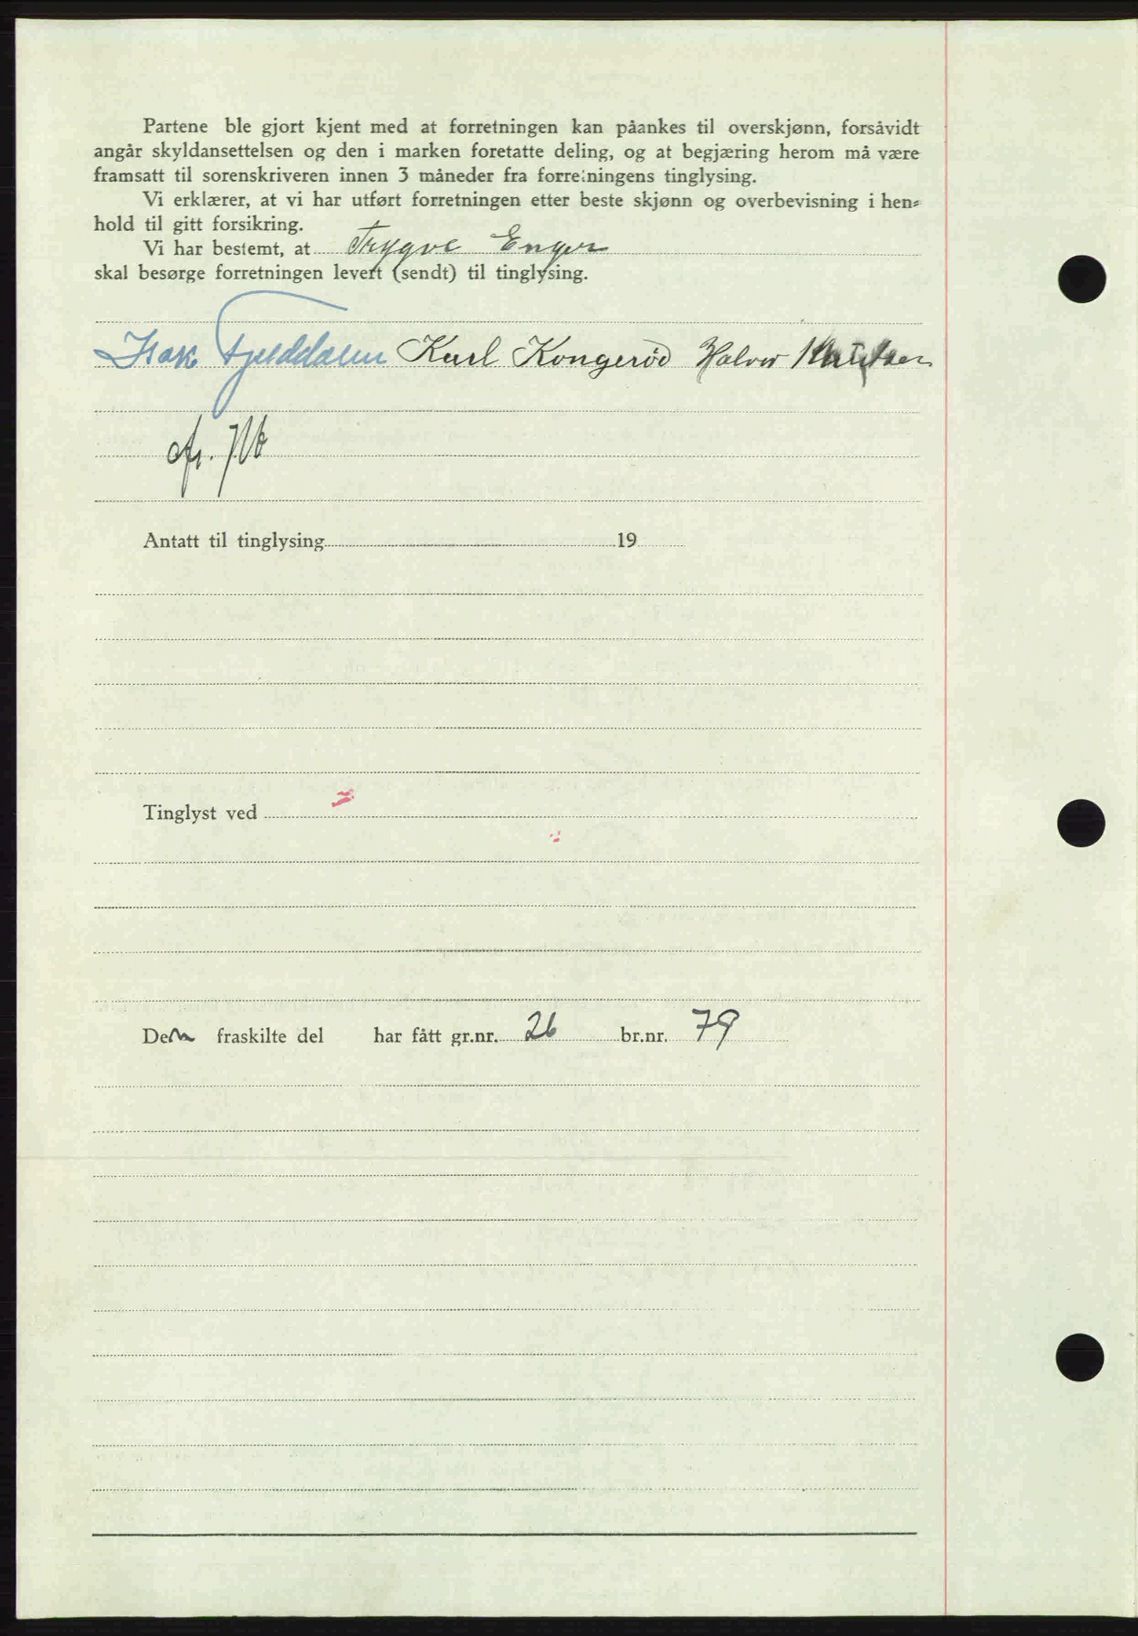 Partene ble gjort kjent med at forretningen kan påankes til overskjønn, forsåvidt
angår skyldansettelsen og den i marken foretatte deling, og at begjæring herom må være
framsatt til sorenskriveren innen 3 måneder fra forretningens tinglysing.
Vi erklærer, at vi har utført forretningen etter beste skjønn og overbevisning i hen-
hold til gitt forsikring.
Vi har bestemt, at Trygve Enger
skal besørge forretningen levert (sendt) til tinglysing.
Isak Fjelddalen Karl Kongerød Halvor Knutsen
Antatt til tinglysing 19
Tinglyst ved
Den fraskilte del har fått gr.nr. 26 br.nr. 79